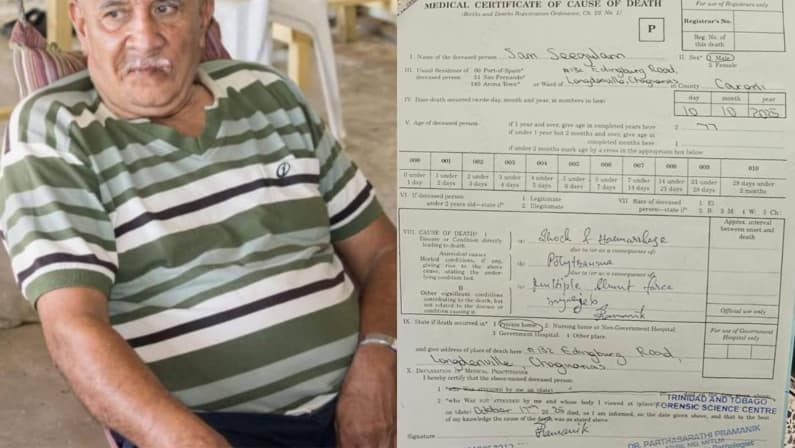 MEDICAL CERTIFICATE OF CAUSE OF DEATH
(Births and Deaths Registration Ordinance, Ch. 29. No. 1)
For use of Registrars only
P
Registrar's No.
Reg. No. of this death
I. Name of the deceased person Sam Seegulam
II. Sex* 1 Male
2 Female
III. Usual Residence of deceased person
00 Port-of-Spain*
24 San Fernando*
140 Arima Town*
#132 Edinburg Road,
or Ward of Longdenville, Chaguanas
in County Caroni
IV. Date death occurred (write day, month and year, in numbers in box)
day month year
10 10 2025
V. Age of deceased person
if 1 year and over, give age in completed years here 2 77
if under 1 year but 2 months and over, give age in completed months here 1
if under 2 months mark age by a cross in the appropriate box below
000 001 002 003 004 005 006 007 008 009 010
0 under 1 day
1 under 2 days
2 under 3 days
3 under 4 days
4 under 5 days
5 under 6 days
6 under 7 days
7 under 14 days
14 under 21 days
21 under 28 days
28 days under 2 months
VI. If deceased person under 2 years old—state if*
1. Legitimate
2. Illegitimate
VII. Race of deceased person—state if*
1. EI
2. B 3 M 4 W. 5 Ch
Approx. interval between onset and death
VIII. CAUSE OF DEATH I
Disease or Condition directly leading to death.
(a) Shock & Haemorrhage
due to (or as a consequence of)
Antecedent causes
Morbid conditions, if any, giving rise to the above cause, stating the underlying condition last.
(b) Polytrauma
due to (or as a consequence of)
(c) multiple blunt force
injuries
II
Other significant conditions contributing to the death, but not related to the disease or condition causing it
Pramanik
Official use only
IX. State if death occurred in* 1 Private home 2 Nursing home or Non-Government Hospital
3 Government Hospital 4 Other place.
For use of Government Hospital only
and give address of place of death here #132 Edinburg Road,
Longdenville, Chaguanas
X. Declaration of Medical Practitioner
I hereby certify that the above-named deceased person:
1. who was attended by me on (date)
2. who Was NOT ATTENDED by me and whose body I viewed at (place)
TRINIDAD AND TOBAGO
FORENSIC SCIENCE CENTRE
on (date) October 17th 2025 died, as I am informed, on the date given above, and that to the best
of my knowledge the cause of the death was as stated above.
Signature Pramanik
DR. PARTHASARATHI PRAMANIK